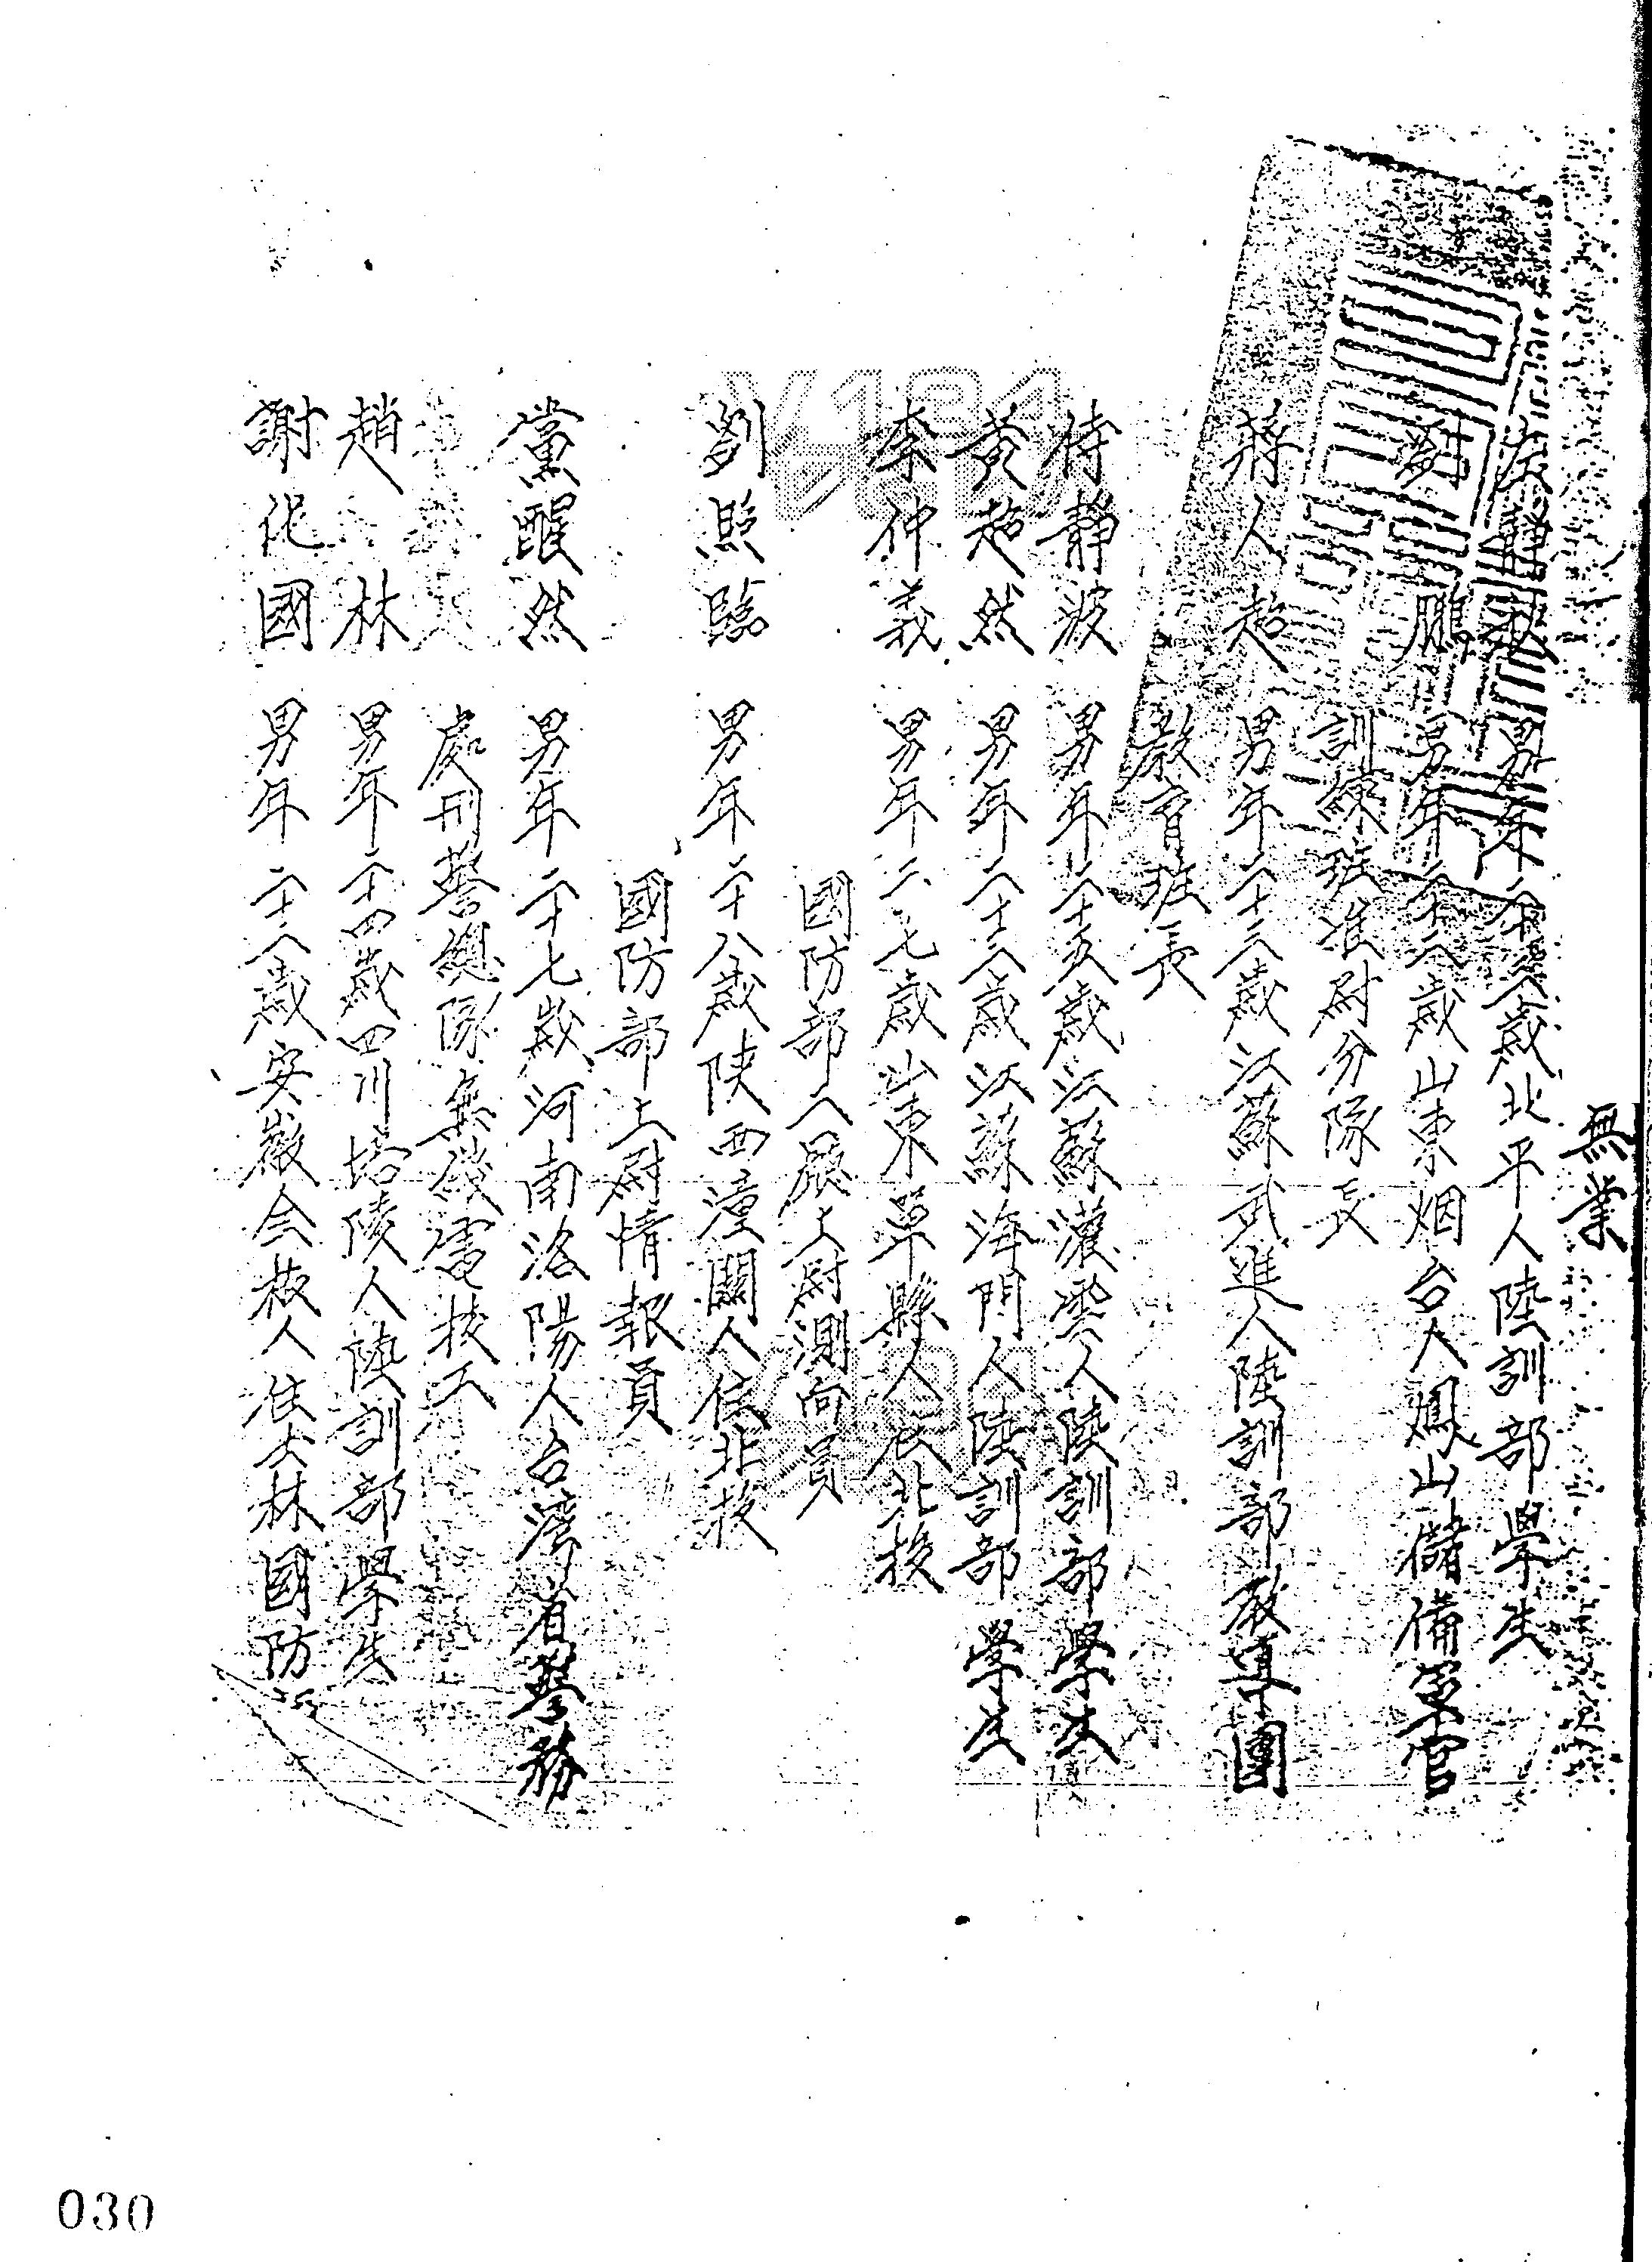 無業
左靜秋 男年二十六歲北平人陸訓部學生
劉鵬 男年二十六歲山東烟台人鳳山儲備軍官
訓練班准尉分隊長
蔣人超 男年二十三歲江蘇武進人陸訓部教導團
教育班長
侍靜波 男年二十五歲江蘇灌雲人陸訓部學生
黃超然 男年二十三歲江蘇海門人陸訓部學生
李仲義 男年二七歲山東單縣人住北投
國防部二廳上尉測向員
劉照臨 男年二十八歲陝西潼關人住北投
國防部上尉情報員
黨醒然 男年二十七歲河南洛陽人台灣省警務
處刑警總隊無線電技工
趙林 男年二十四歲四川培陵人陸訓部學生
謝化國 男年二十八歲安徽全椒人住大林國防
030